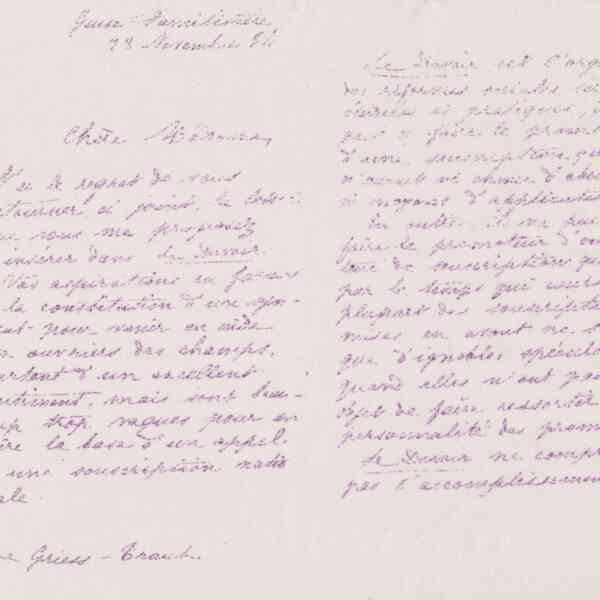 Guise = Familistère
28 Novembre 84
Chère Madame,
J'ai le regret de vous
retourner ci joint, le
que vous me proposez
insérer dans le Devoir.
Vos aspirations en faveur
la constitution d'une
pour venir en aide
ouvriers des champs,
partent d'un excellent
sentiment, mais sont beau-
up trop vagues pour en
ire la base d'un appel
une souscription natio
ale.
Griess-Traut
Le Devoir est l'orga
des réformes sociales
et pratiques,
peut se faire le promo
d'une souscription qu
n'aurait ni chance d'
ni moyens d'application
En outre, il ne peut
faire le promoteur d'
de souscription
par le temps qui court
plupart des souscriptio
mises en avant ne s
que d'ignobles spécula
quand elles n'ont pas
objet de faire ressortir
personnalité des prom
Le Devoir ne compr
pas l'accomplissemen